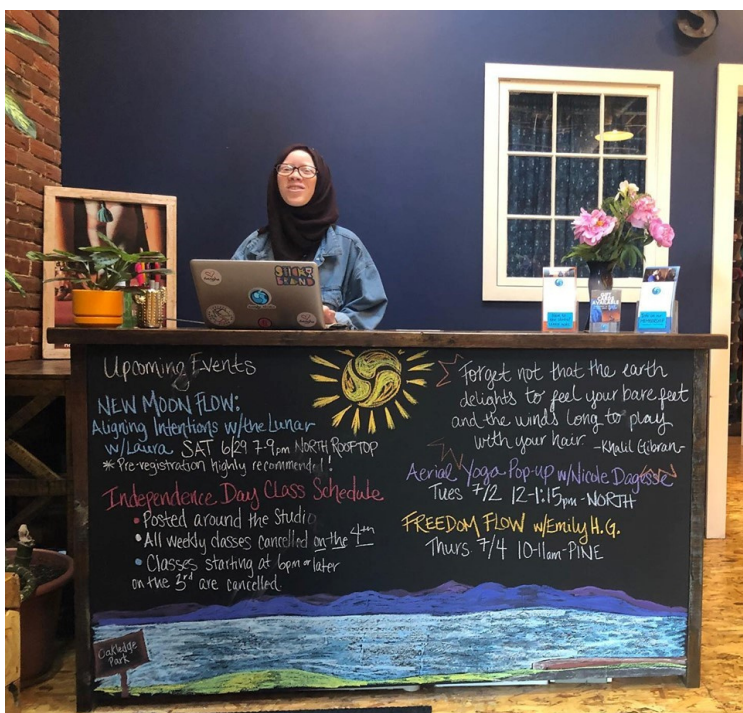 Upcoming Events
NEW MOON FLOW:
Aligning Intentions w/the Lunar
w/Laura SAT 6/29 7-9pm NORTH ROOFTOP
* Pre-registration highly recommended!
Independence Day Class Schedule
• Posted around the Studio
• All weekly classes cancelled on the 4th
• Classes starting at 6pm or later
on the 3rd are cancelled.
Forget not that the earth
delights to feel your bare feet
and the winds long to play
with your hair. -Khalil Gibran-
Aerial Yoga Pop-up w/Nicole Dagesse
Tues 7/2 12-1:15pm -NORTH
FREEDOM FLOW w/Emily H.G.
Thurs 7/4 10-11am-PINE
Oakledge
Park
STICKY
BRAND